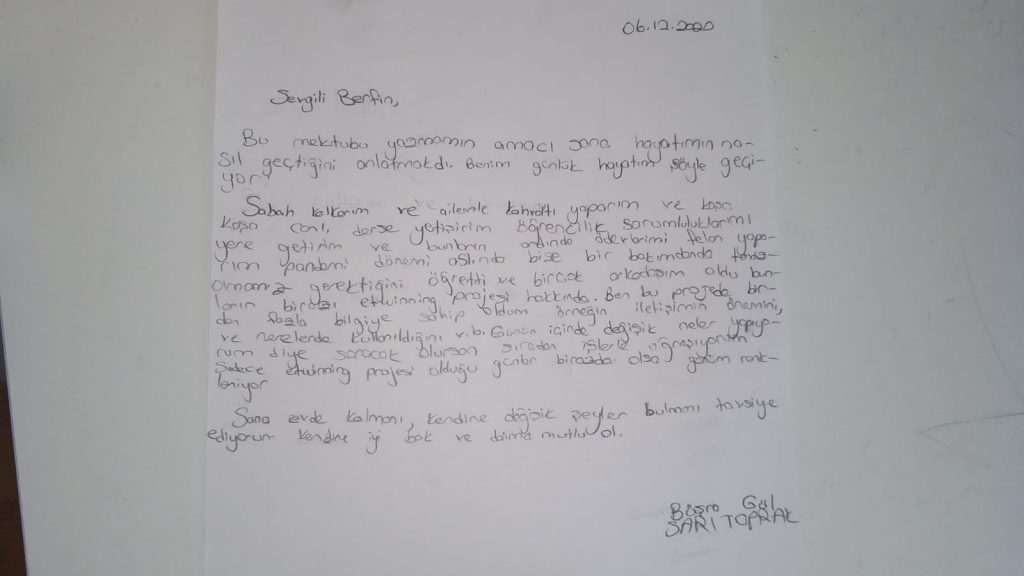 06.12.2020
Sevgili Berfin,
Bu mektubu yazmamın amacı sana hayatımın na-
sıl geçtiğini anlatmakdı. Benim günlük hayatım şöyle geçi-
yor;
Sabah kalkarım ve ailemle kahvaltı yaparım ve koşa
koşa canlı derse yetişirim öğrencilik sorumluluklarımı
yere getiririm ve bunların ardında ödevlerimi felan yapa-
rım pandemi dönemi aslında bize bir bakımdanda
gerektiğini öğretti ve birçok arkadaşım oldu bun-
ların birazı etwinning projesi hakkında. Ben bu projede bir-
den fazla bilgiye sahip oldum örneğin iletişimin önemini,
ve nerelerde kullanıldığını v.b. Günün içinde değişik neler yapıyo-
rum diye soracak olursan sıradan işlerle uğraşıyorum
Sadece etwinning projesi olduğu günler birazda olsa günüm renk-
leniyor
Sana evde kalmanı, kendine değişik şeyler bulmanı tavsiye
ediyorum kendine iyi bak ve daima mutlu ol.
Büşra Gül
SARITOPRAK